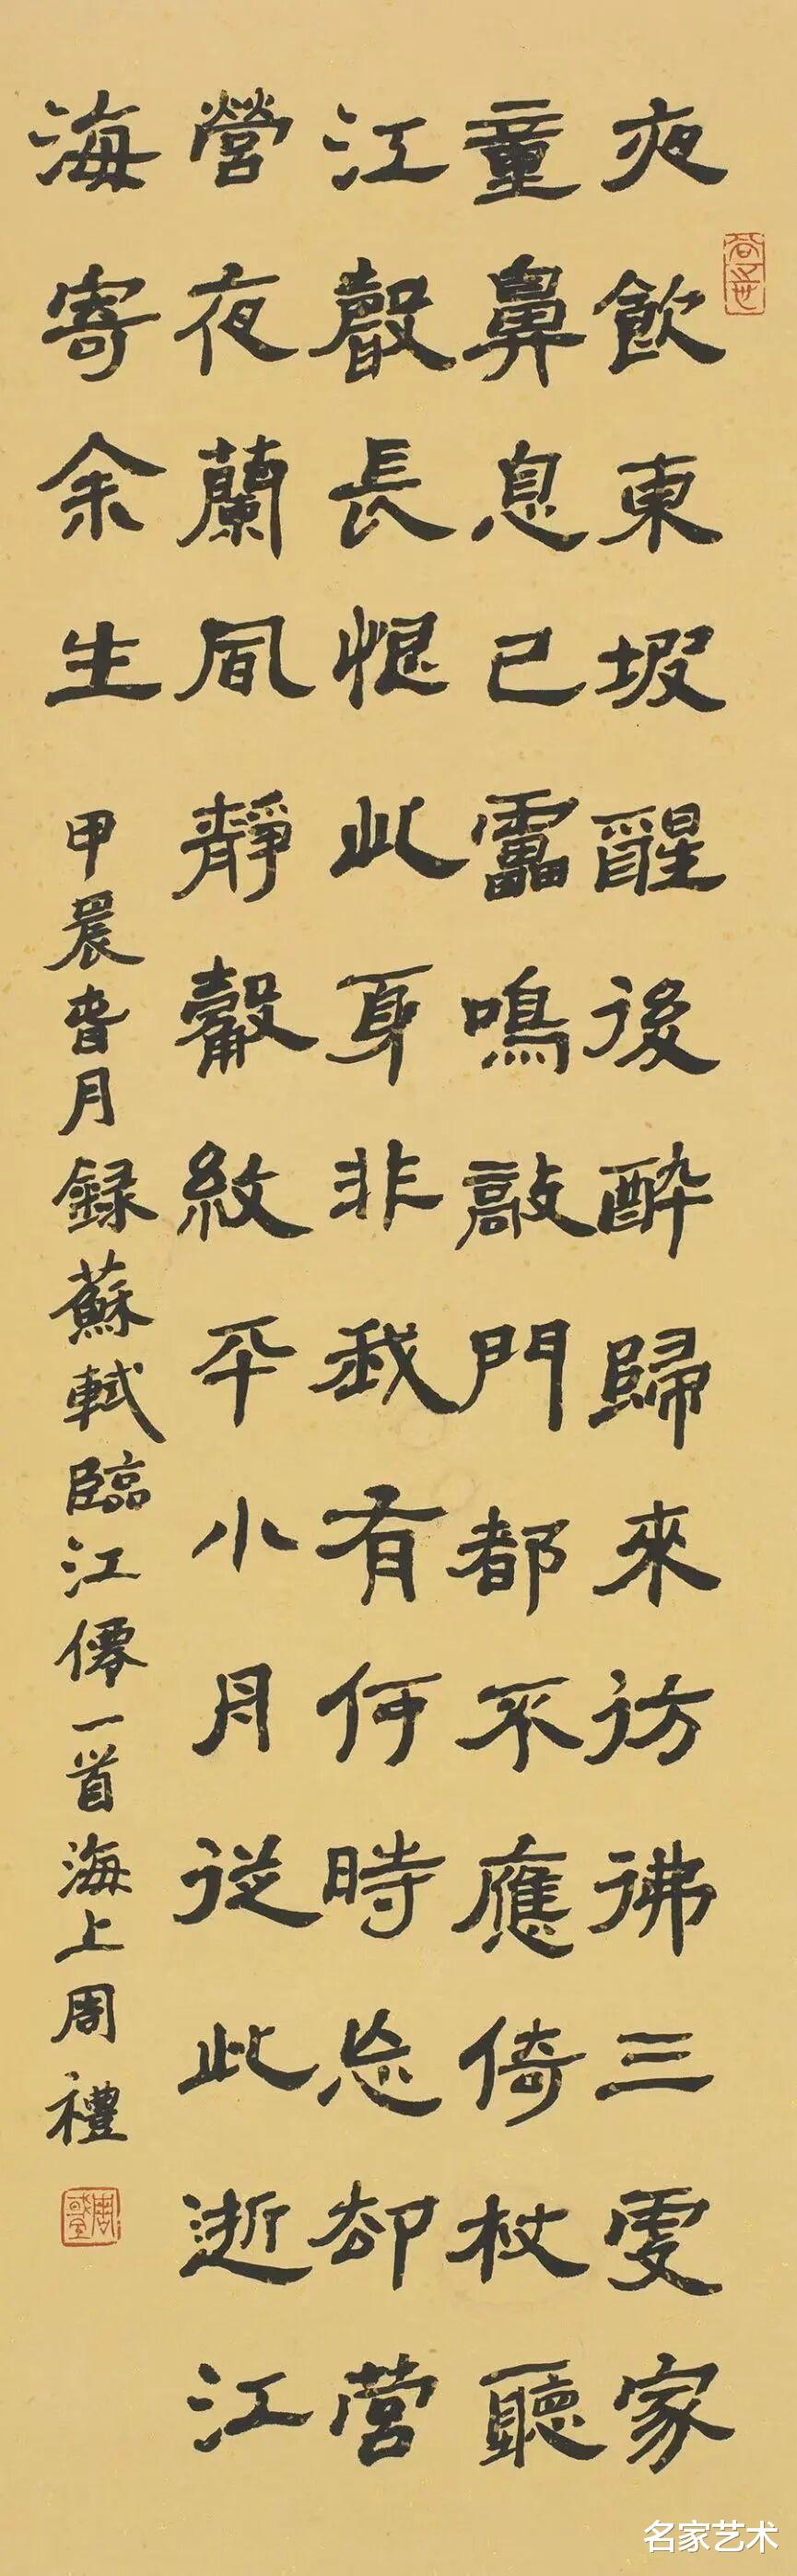 夜飲東坡醒後酔歸來彷彿三更家
童鼻息已靁鳴敲門都不應倚杖聽
江聲長恨此身非我有何時忘卻營
營夜蘭風靜縠紋平小舟從此逝江
海寄余生
甲辰春月錄蘇軾臨江僊一首海上周禮
名家艺术